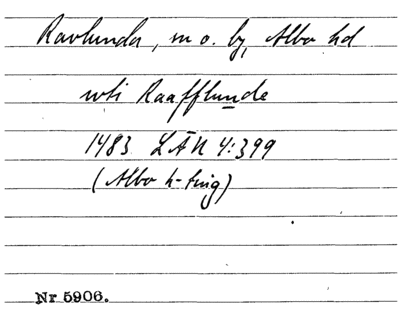 Ravlunda, sn o. by, Albo hd
uti Raafflunde
1483 LÄU 4:399
(Albo h-ting)
Nr 5906.